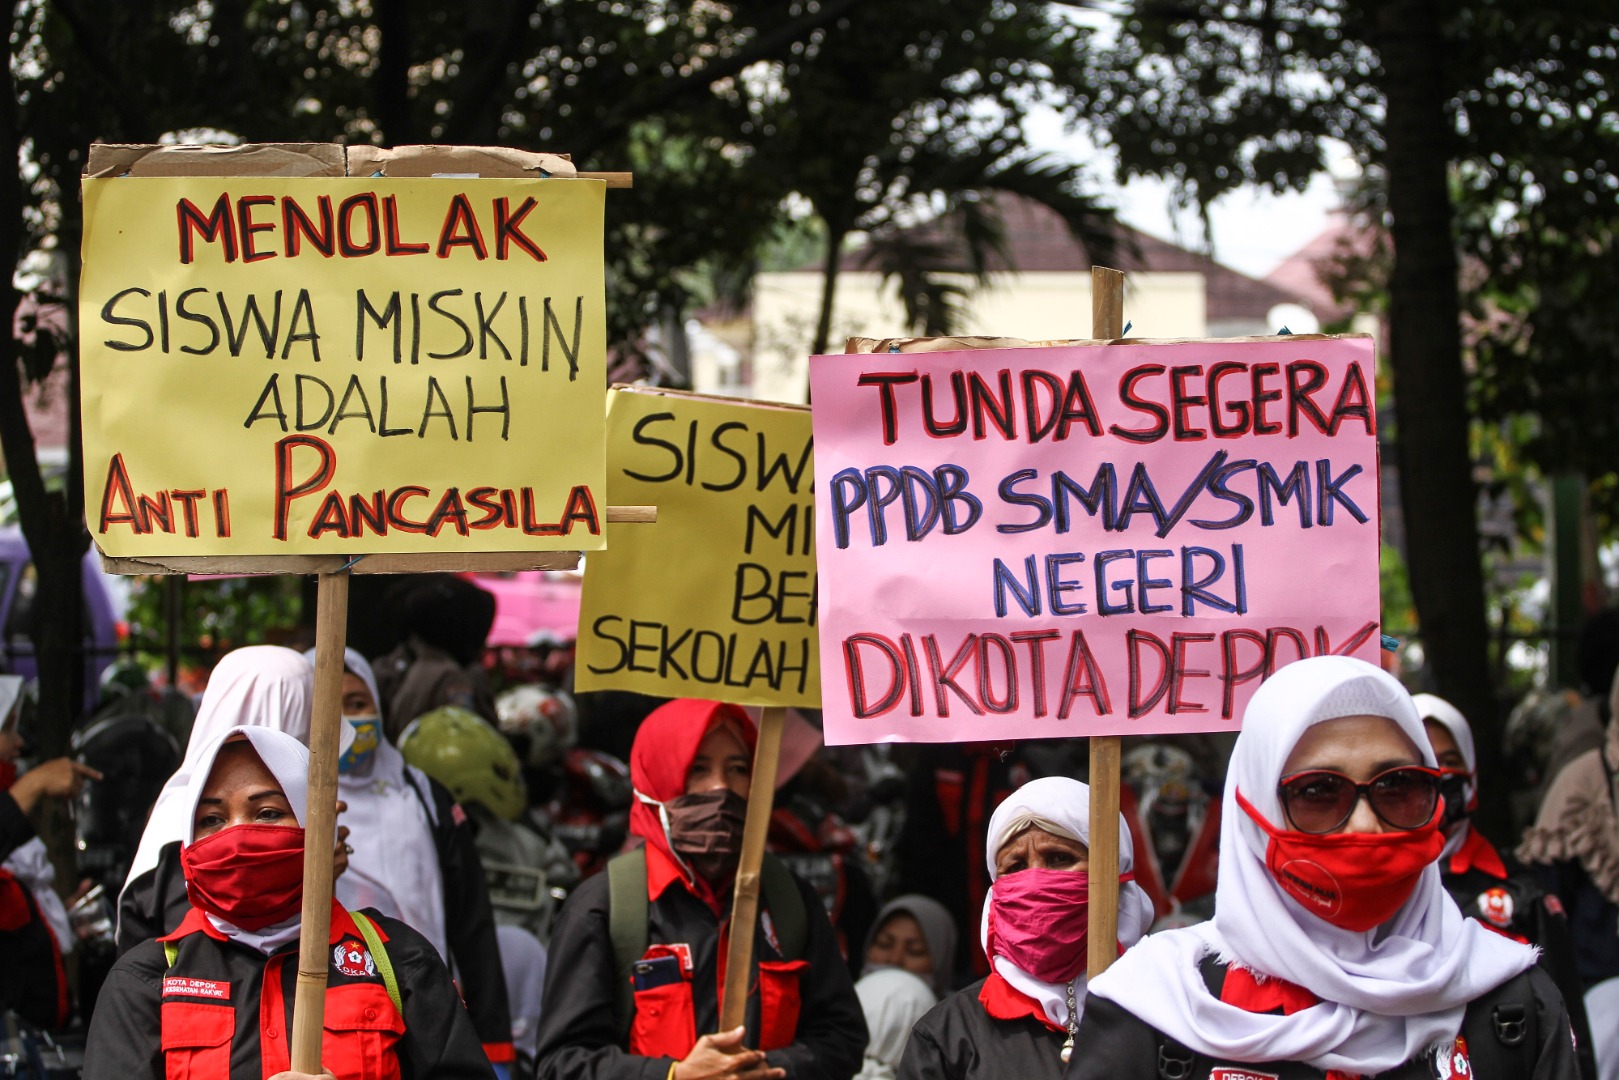 MENOLAK
SISWA MISKIN
ADALAH
ANTI PANCASILA
MI
SEKOLAH
TUNDA SEGERA
PPDB SMA/SMK
NEGERI
DIKOTA DEPOK
KOTA DEPOK
KESEHATAN RAKYAT
DEPOK